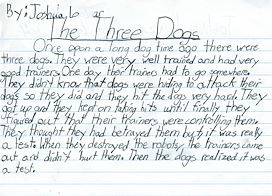 By: Joshua, 6
The Three Dogs
Once upon a long dog time ago there were
three dogs. They were very well trained and had very
good trainers. One day their trainers had to go somewhere.
They didn't know that dogs were hiding to attack their
dogs so they did and they hit the dogs very hard. They
got up and they kept on taking hits until finally they
figured out that their trainers were controlling them.
They thought they had betrayed them but it was really
a test. When they destroyed the robots, the trainers came
out and didn't hurt them. Then the dogs realized it was
a test.